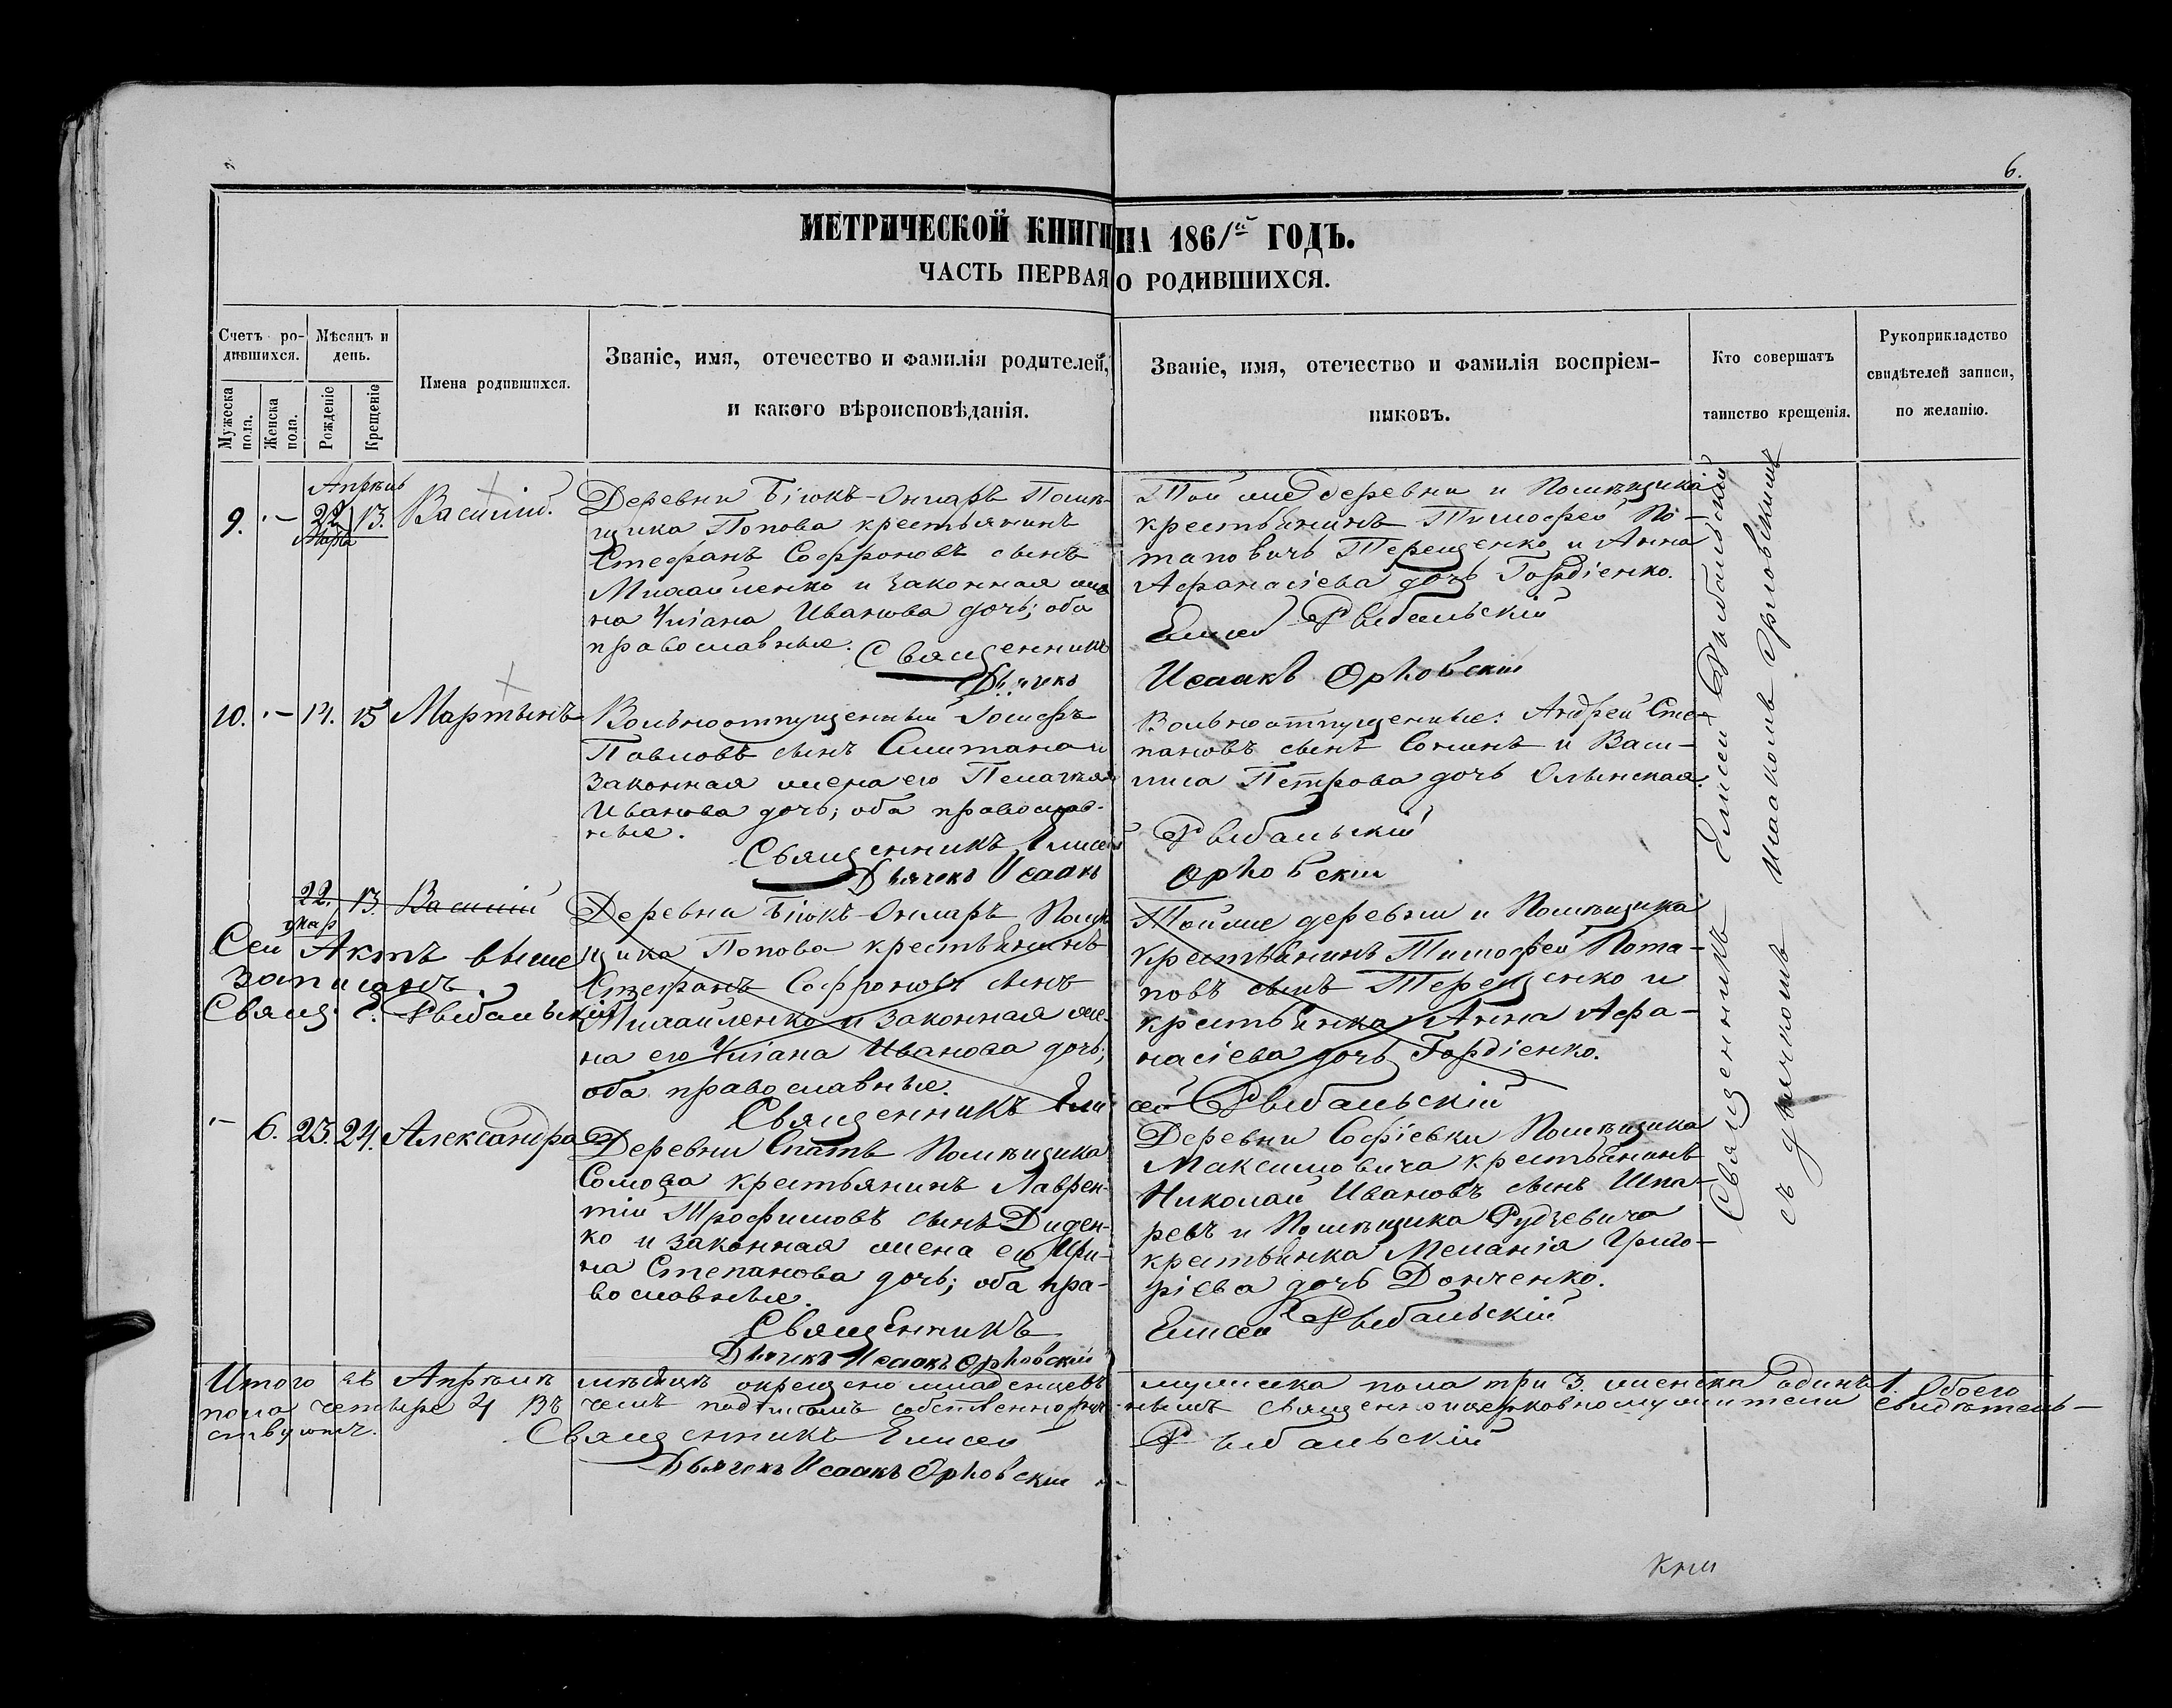 6.
МЕТРИЧЕСКОЙ КНИГИ НА 1861й ГОДЪ.
ЧАСТЬ ПЕРВАЯ О РОДИВШИХСЯ.
Счетъ родившихся.
Мужеска пола.
Женска пола.
Мѣсяцъ и день.
Рожденіе
Крещеніе
Имена родившихся.
Званіе, имя, отечество и фамилія родителей,
и какого вѣроисповѣданія.
Званіе, имя, отечество и фамилія воспріем-
никовъ.
Кто совершатъ
таинство крещенія.
Рукоприкладство
свидѣтелей записи,
по желанію.
Апрѣль
9. - 22 Марта 13. Василій.
Деревни Біюкъ-Онларъ Помѣ-
щика Попова крестьянинъ
Стефанъ Софроновъ сынъ
и законная же
на Уліана Иванова дочь; оба
православные. Священникъ
Дьячекъ
Той же деревни и Помѣщика
крестьянинъ Тимофей По-
таповичъ Терещенко и Анна
Афанасіева дочь Гордіенко.
Елисей Рыбальскій
Исаакъ Орловскій
10. - 14. 15 Мартынъ
Вольноотпущенный Іосифъ
Павловъ сынъ и
законная жена его Пелагея
Иванова дочь; оба православ-
ные.
Священникъ Елисей
Дьячекъ Исаакъ
Вольноотпущенные: Андрей Сте-
пановъ сынъ и Васи-
лиса Петрова дочь
Рыбальскій
Орловскій
22. Мар 13. Василій
Сей Актъ выше
записанъ.
Свящ. Е. Рыбальскій
Деревни Біюкъ-Онларъ Помѣ
щика Попова крестьянинъ
Стефанъ Софроновъ сынъ
и законная же-
на его Уліана Иванова дочь;
оба православные.
Священникъ Ели
Той же деревни и Помѣщика
крестьянинъ Тимофей Пота-
повъ сынъ Терещенко и
крестьянка Анна Афа-
насіева дочь Гордіенко.
сей Рыбальскій
- 6. 23. 24. Александра
Деревни Спатъ Помѣщика
Сомова крестьянинъ Лаврен-
тій Трофимовъ сынъ Диден-
ко и законная жена его Ири-
на Степанова дочь; оба пра-
вославные.
Священникъ
Дьячекъ Исаакъ Орловскій
Деревни Софіевки Помѣщика
Максимовича крестьянинъ
Николай Ивановъ сынъ Шпа-
ревъ и Помѣщика Рудзевича
крестьянка Меланія Григо-
ріева дочь Донченко.
Елисей Рыбальскій
Священникъ Елисей Рыбальскій
съ дьячкомъ Исаакомъ Орловскимъ
Итого въ Апрѣлѣ мѣсяцѣ окрещено младенцевъ мужеска пола три 3. женска одинъ 1. Обоего
пола четыре 4 Въ чемъ подписомъ собственноруч-нымъ свидѣтель-
ствуютъ.
Священникъ Елисей Рыбальскій
Дьячекъ Исаакъ Орловскій